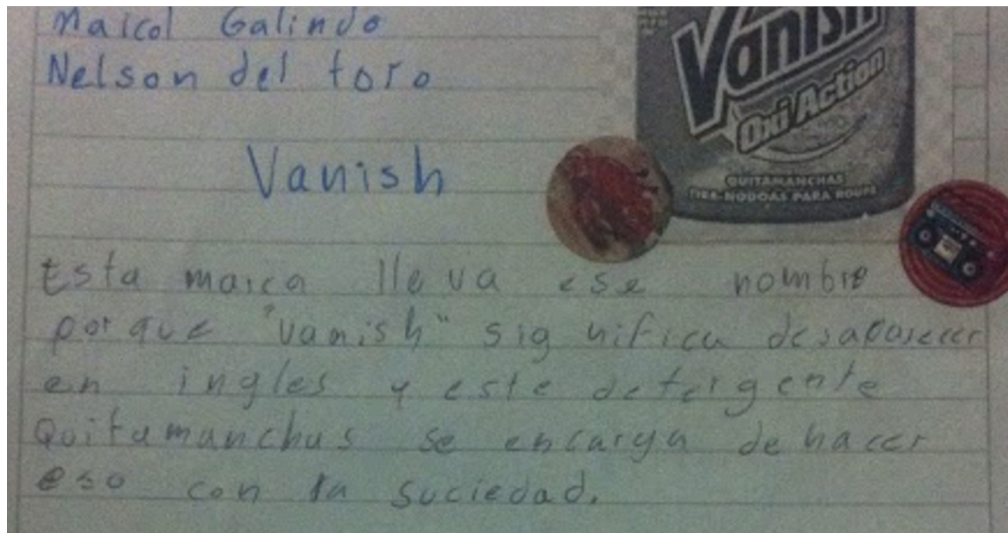 Maicol Galindo
Nelson del toro
Vanish
Oxi Action
QUITAMANCHAS
TIRA-NODOAS PARA ROUPA
Vanish
Esta marca lleva ese nombre
porque "vanish" significa desaparecer
en ingles y este detergente
Quitamanchas se encarga de hacer
eso con la suciedad.